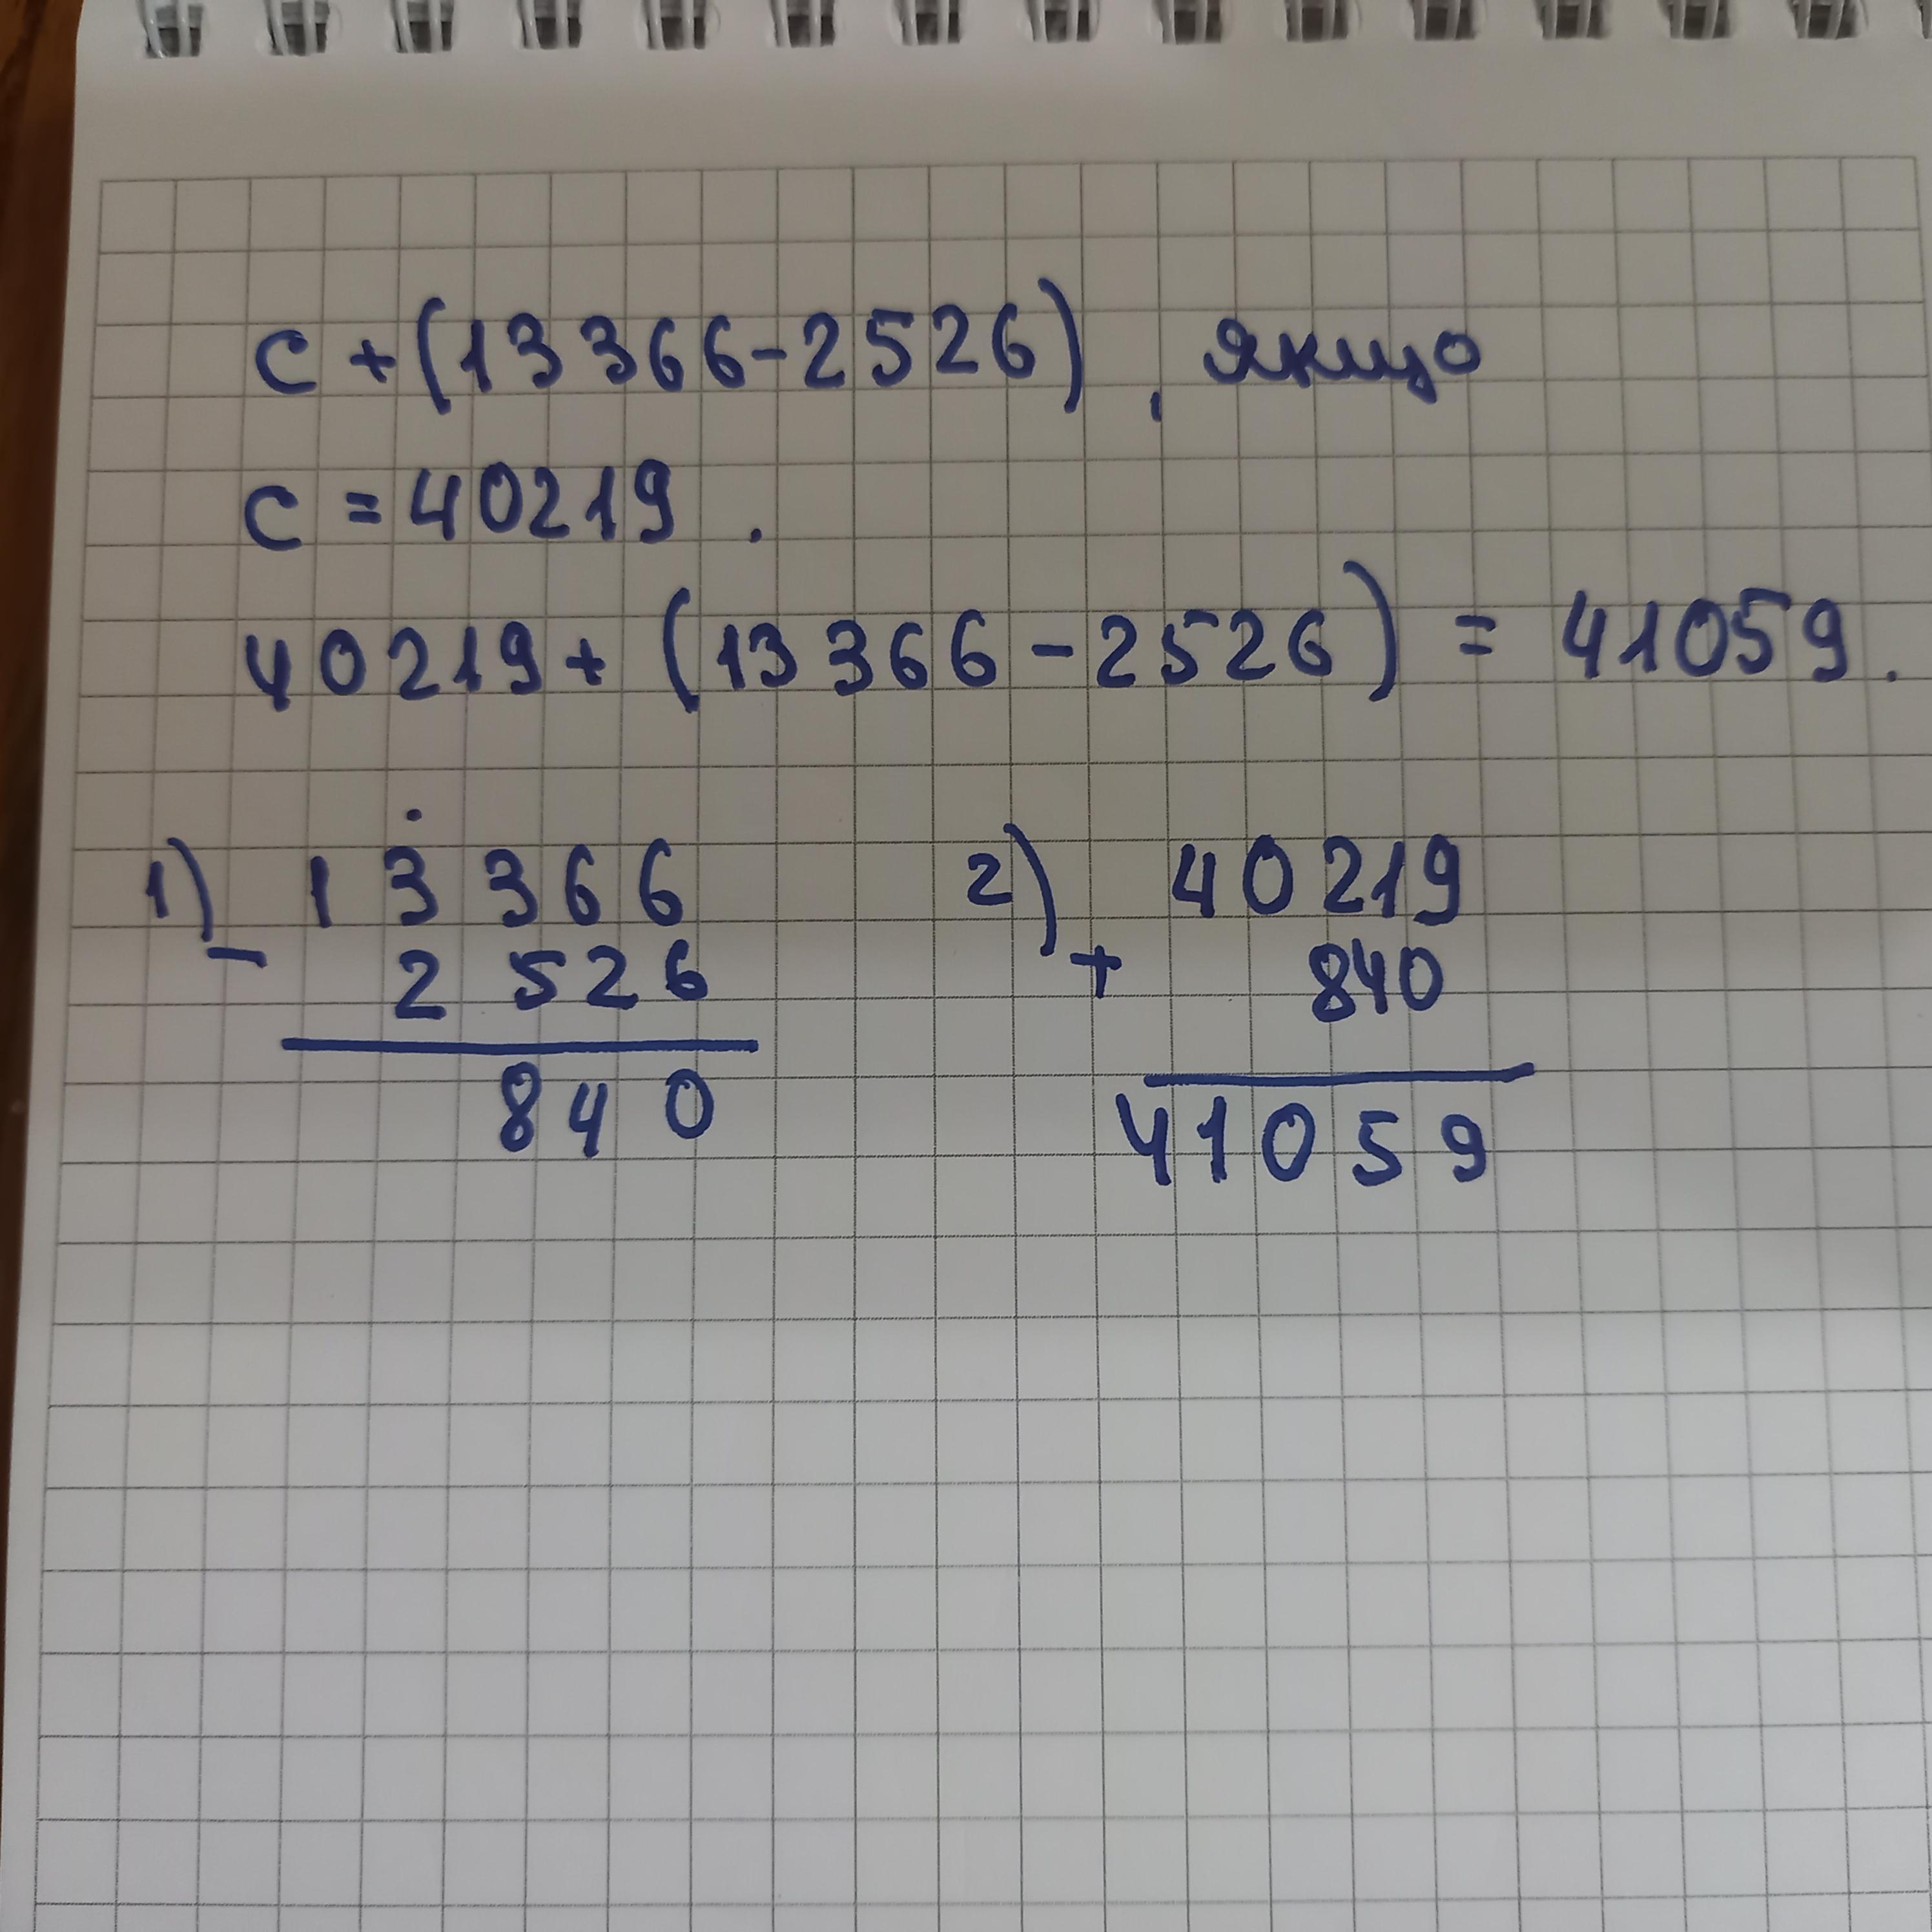 c + (13366-2526), якщо
c = 40219.
40219 + (13366 - 2526) = 41059.
1) 13366 2) 40219
- 2526 + 840
840 41059